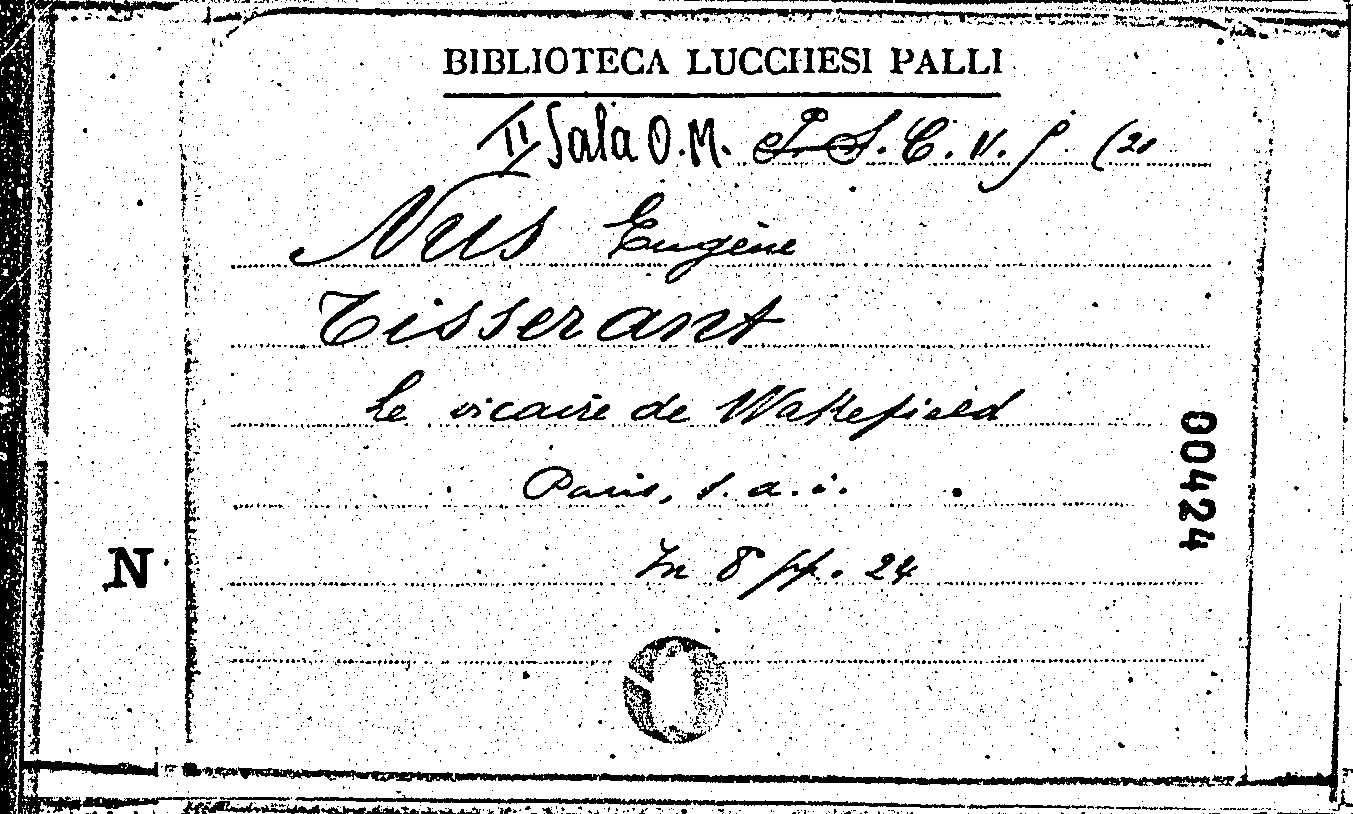 BIBLIOTECA LUCCHESI PALLI
II Sala O.M. P. S. C. V. J. (21
Nus Eugène
Tisserant
Le vicaire de Wakefield
Paris, s. a. i.
In 8° pp. 24
N
00424